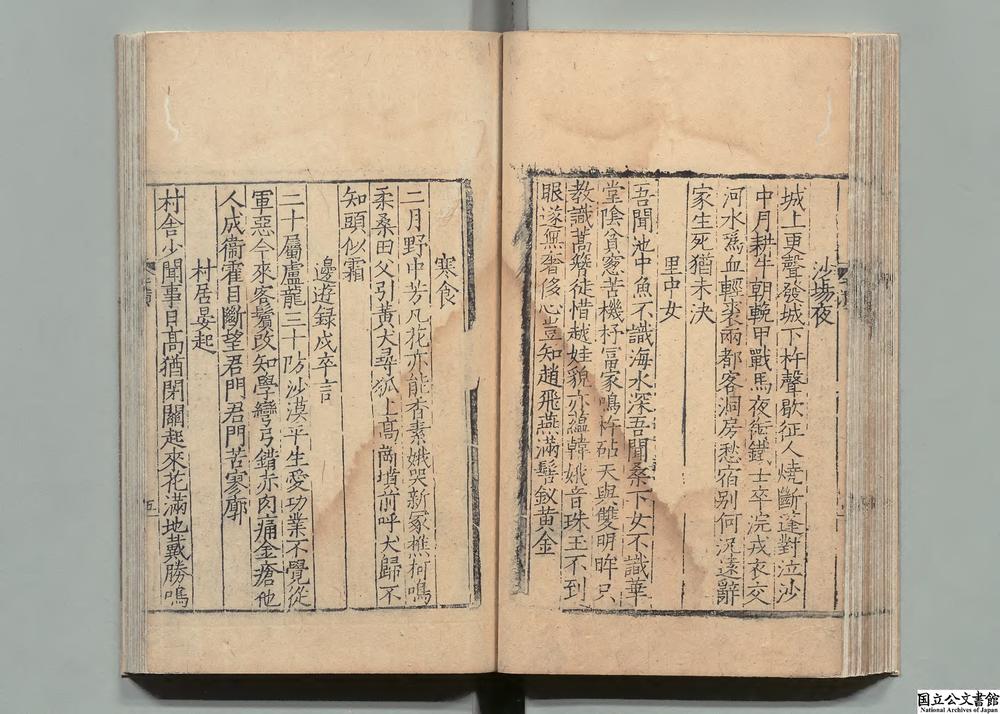 沙場夜
城上更聲發城下杵聲歇征人燒斷蓬對泣沙
中月耕牛朝輓甲戰馬夜銜鐵士卒浣戎衣交
河水為血輕裘兩都客洞房愁宿别何況遠辭
家生死猶未決
里中女
吾聞池中魚不識海水深吾聞桑下女不識華
堂陰貧窓苦機杼富家鳴杵砧天與雙明眸只
教識蒿簪徒惜越娃貌亦蘊韓娥音珠玉不到
眼遂無奢侈心豈知趙飛燕滿髻釵黄金
寒食
二月野中芳凡花亦能香素娥哭新冢樵柯鳴
柔桑田父引黄犬尋狐上高崗墳前呼犬歸不
知頭似霜
邊遊録戍卒言
二十屬盧龍三十防沙漠平生愛功業不覺從
軍惡今來客鬢改知學彎弓錯赤肉痛金瘡他
人成衞霍目斷望君門君門苦寥廓
村居晏起
村舎少聞事日高猶閉關起來花滿地戴勝鳴
五
国立公文書館
National Archives of Japan